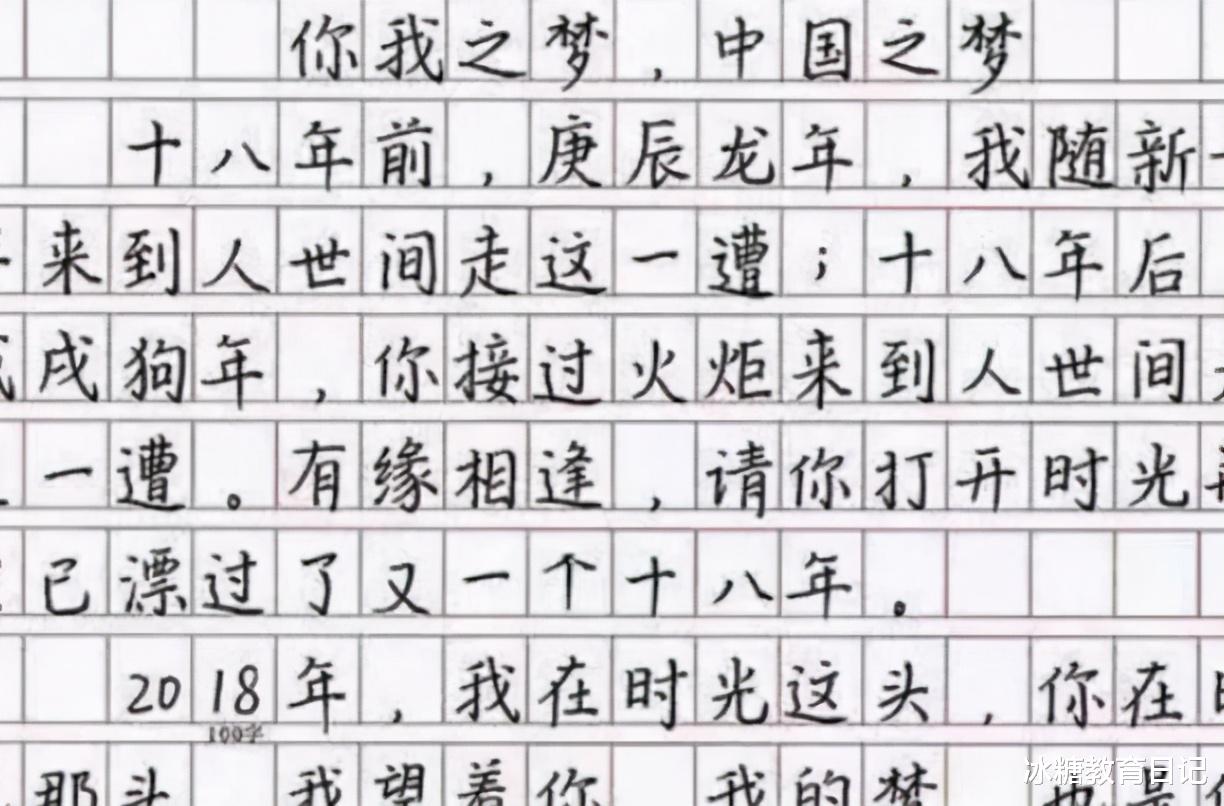 你我之梦，中国之梦
十八年前，庚辰龙年，我随新
来到人世间走这一遭；十八年后
戌狗年，你接过火炬来到人世间
一遭。有缘相逢，请你打开时光
已漂过了又一个十八年。
2018年，我在时光这头，你在
100字
那头 我望着你 我的梦 也是
冰糖教育日记